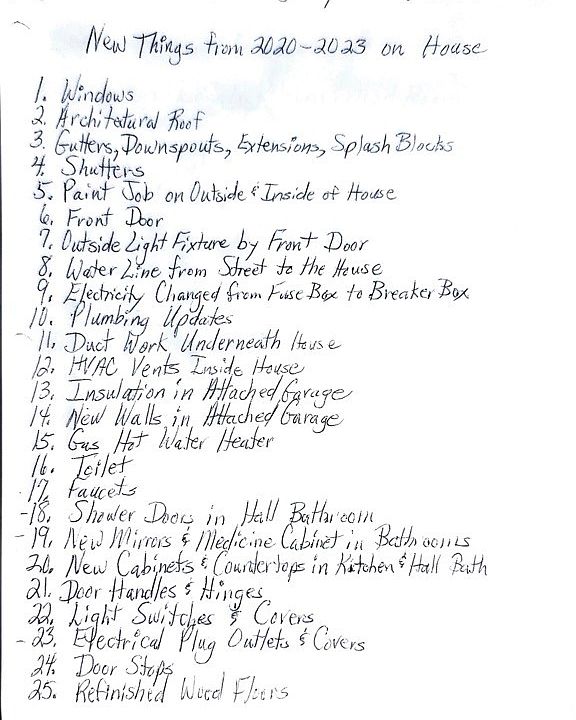 New Things from 2020-2023 on House
1. Windows
2. Architatural Roof
3. Gutters, Downspouts, Extensions, Splash Blocks
4. Shutters
5. Paint Job on Outside & Inside of House
6. Front Door
7. Outside Light Fixture by Front Door
8. Water Line from Street to the House
9. Electricity Changed from Fuse Box to Breaker Box
10. Plumbing Updates
- 11. Duct Work Underneath House
12. HVAC Vents Inside House
13. Insulation in Attached Garage
14. New Walls in Attached Garage
15. Gas Hot Water Heater
16. Toilet
17. Faucets
-18. Shower Doors in Hall Bathroom
-19. New Mirrors & Medicine Cabinet in Bathrooms
20. New Cabinets & Countertops in Kitchen & Hall Bath
21. Door Handles & Hinges
22. Light Switches & Covers
-23. Electrical Plug Outlets & Covers
24. Door Stops
25. Refinished Wood Floors